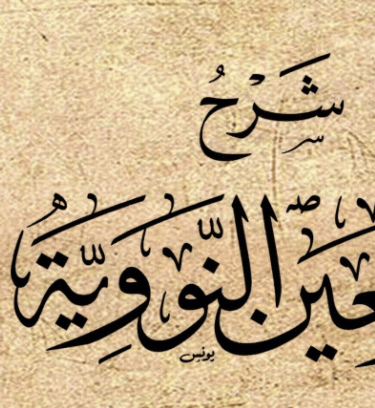 شَرْحُ
عين النَّوَوِيَّة
يونس